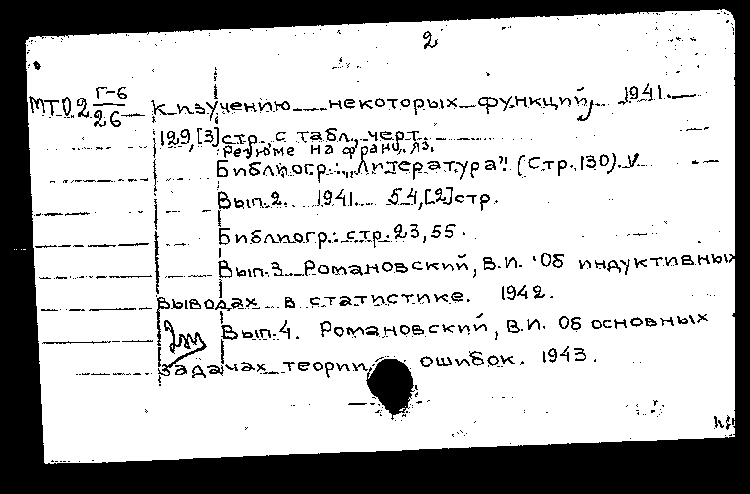 2
МТО2 Г-6/26 к изучению некоторых функций, 1941.
129,[3]стр. с табл., черт.
Резюме на франц. яз.
Библиогр.: „Литература" (стр.130). V
Вып.2. 1941. 54,[2]стр.
Библиогр.: стр.23,55.
Вып.3. Романовский, В.И. Об индуктивных
выводах в статистике. 1942.
Вып.4. Романовский, В.И. Об основных
задачах теории ошибок. 1943.